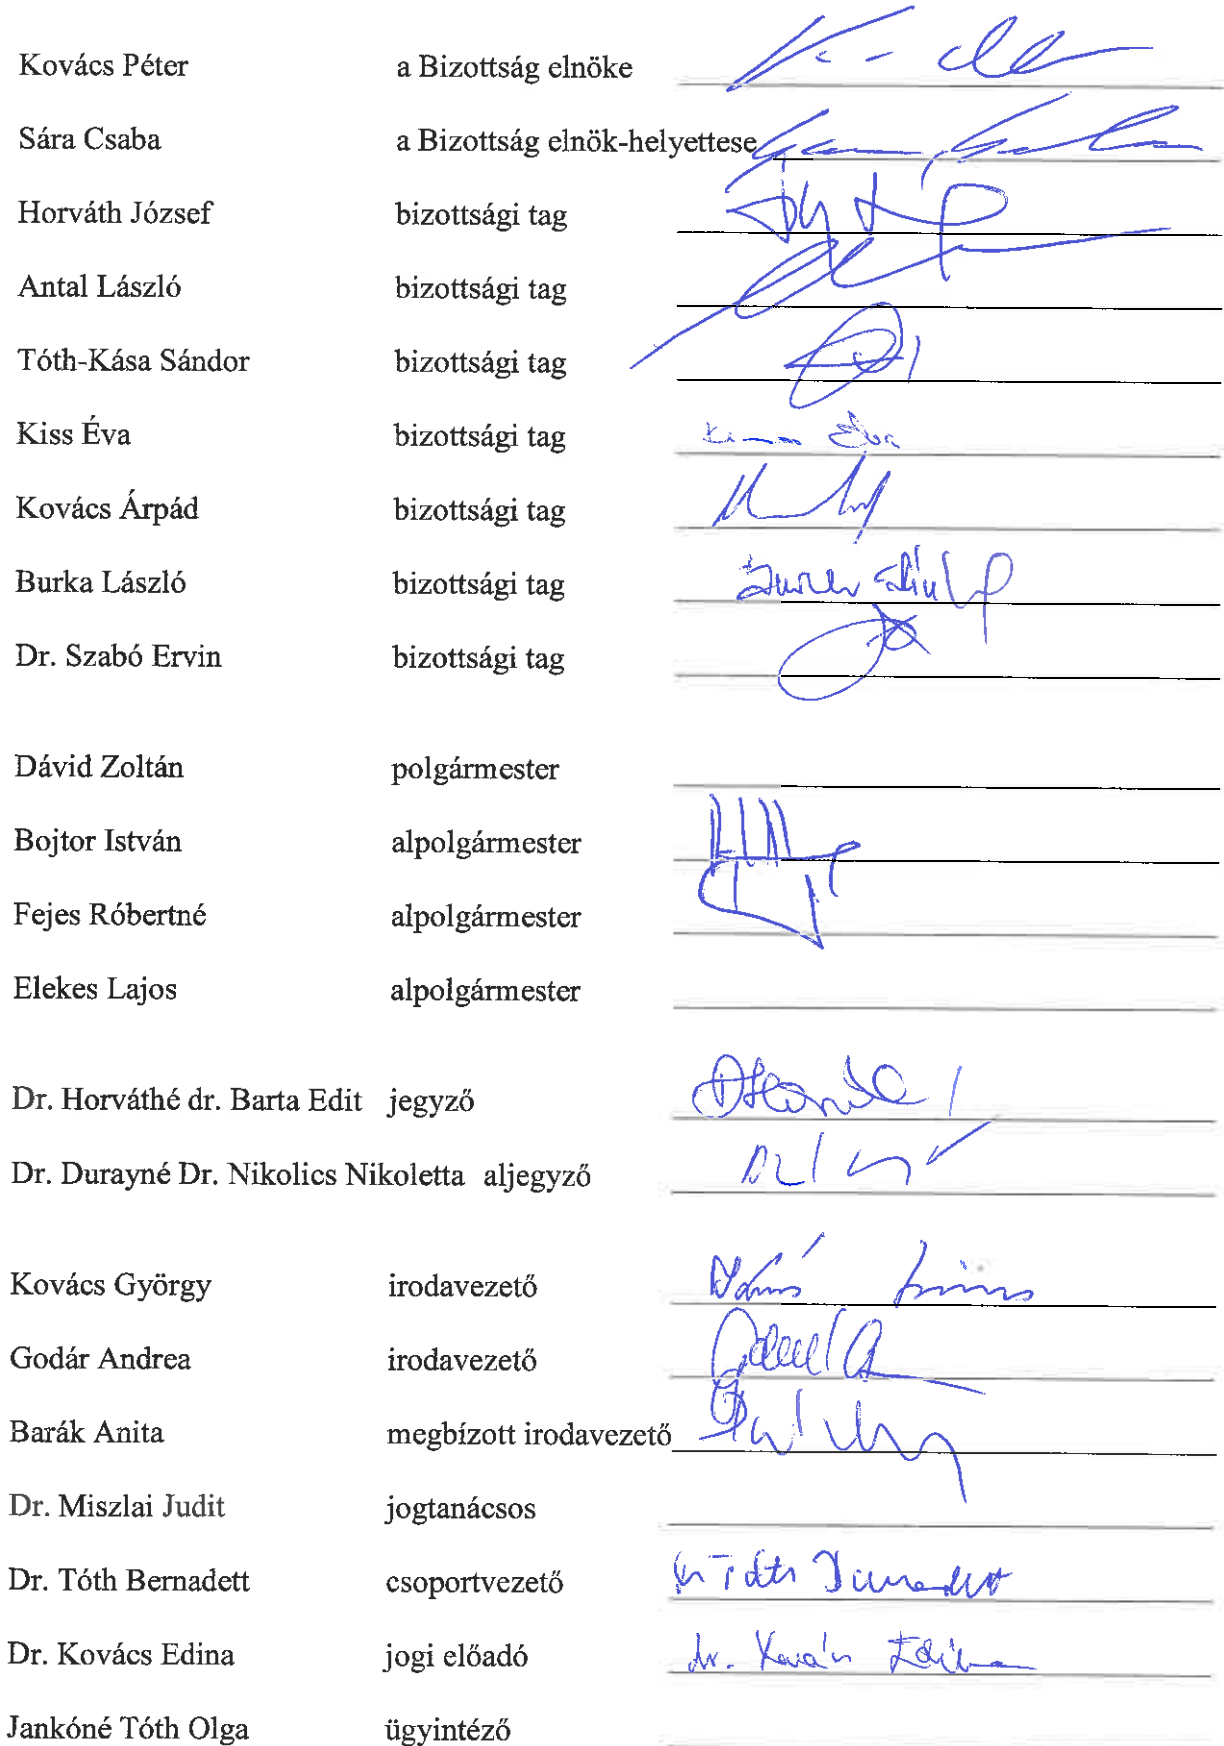 Kovács Péter a Bizottság elnöke
Sára Csaba a Bizottság elnök-helyettese
Horváth József bizottsági tag
Antal László bizottsági tag
Tóth-Kása Sándor bizottsági tag
Kiss Éva bizottsági tag Kiss Éva
Kovács Árpád bizottsági tag
Burka László bizottsági tag
Dr. Szabó Ervin bizottsági tag
Dávid Zoltán polgármester
Bojtor István alpolgármester
Fejes Róbertné alpolgármester
Elekes Lajos alpolgármester
Dr. Horváthé dr. Barta Edit jegyző
Dr. Durayné Dr. Nikolics Nikoletta aljegyző
Kovács György irodavezető
Godár Andrea irodavezető
Barák Anita megbízott irodavezető
Dr. Miszlai Judit jogtanácsos
Dr. Tóth Bernadett csoportvezető dr Tóth Bernadett
Dr. Kovács Edina jogi előadó dr. Kovács Edina
Jankóné Tóth Olga ügyintéző